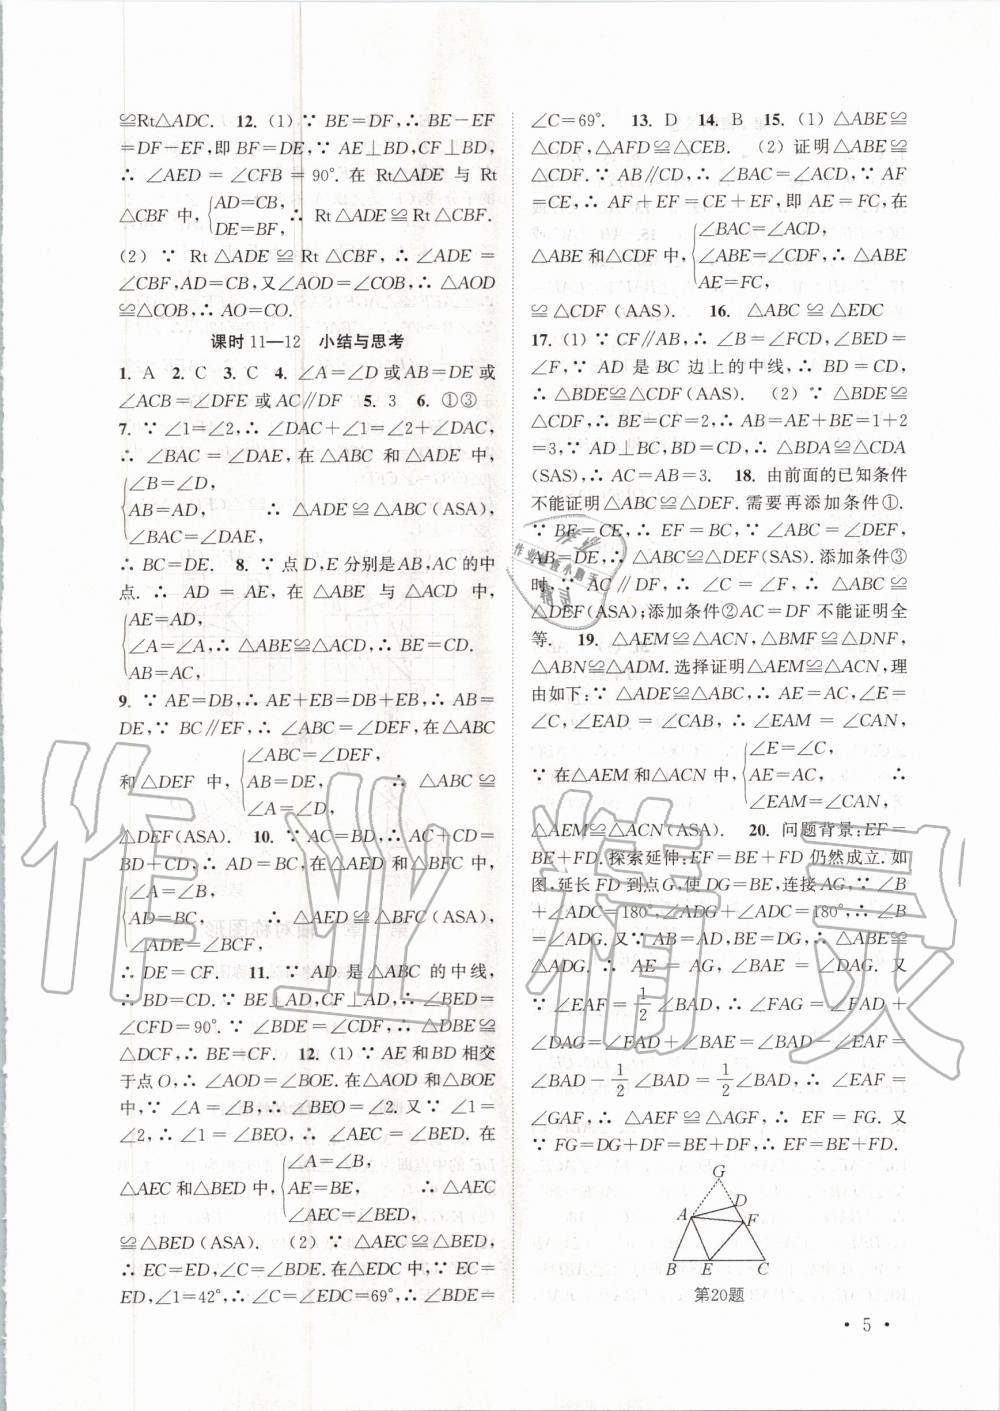 ≌Rt△ADC. 12. (1) ∵ BE=DF,∴ BE－EF
=DF－EF,即 BF=DE,∵ AE⊥BD,CF⊥BD,
∴ ∠AED = ∠CFB = 90°. 在 Rt△ADE 与 Rt
△CBF 中,{AD=CB, DE=BF, ∴ Rt△ADE≌Rt△CBF.
(2) ∵ Rt △ADE ≌ Rt △CBF, ∴ ∠ADE =
∠CBF,AD=CB,又∠AOD=∠COB,∴ △AOD
≌△COB,∴ AO=CO.
课时 11—12 小结与思考
1. A 2. C 3. C 4. ∠A=∠D 或AB=DE 或
∠ACB=∠DFE 或AC∥DF 5. 3 6. ①③
7. ∵ ∠1=∠2,∴ ∠DAC+∠1=∠2+∠DAC,
∴ ∠BAC = ∠DAE, 在 △ABC 和 △ADE 中,
{∠B=∠D,
AB=AD, ∴ △ADE≌△ABC(ASA),
∠BAC=∠DAE,
∴ BC=DE. 8. ∵ 点D,E 分别是AB,AC 的中
点. ∴ AD = AE, 在 △ABE 与 △ACD 中,
{AE=AD,
∠A=∠A,∴ △ABE≌△ACD,∴ BE=CD.
AB=AC,
9. ∵ AE=DB,∴ AE+EB=DB+EB,∴ AB=
DE,∵ BC∥EF,∴ ∠ABC=∠DEF,在△ABC
和△DEF 中,{∠ABC=∠DEF, AB=DE, ∠A=∠D, ∴ △ABC ≌
△DEF(ASA). 10. ∵ AC=BD,∴ AC+CD=
BD+CD,∴ AD=BC,在△AED 和△BFC 中,
{∠A=∠B,
AD=BC, ∴ △AED ≌ △BFC (ASA),
∠ADE=∠BCF,
∴ DE=CF. 11. ∵ AD 是△ABC 的中线,
∴ BD=CD. ∵ BE⊥AD,CF⊥AD,∴ ∠BED=
∠CFD=90°. ∵ ∠BDE=∠CDF,∴ △DBE≌
△DCF,∴ BE=CF. 12. (1) ∵ AE和BD 相交
于点O,∴ ∠AOD=∠BOE. 在△AOD 和△BOE
中,∵ ∠A=∠B,∴ ∠BEO=∠2. 又∵ ∠1=
∠2,∴ ∠1=∠BEO,∴ ∠AEC=∠BED. 在
△AEC 和△BED 中,{∠A=∠B, AE=BE, ∠AEC=∠BED, ∴ △AEC
≌△BED(ASA). (2) ∵ △AEC≌△BED,
∴ EC=ED,∠C=∠BDE. 在△EDC 中,∵ EC=
ED,∠1=42°,∴ ∠C=∠EDC=69°,∴ ∠BDE=
∠C=69°. 13. D 14. B 15. (1) △ABE≌
△CDF,△AFD≌△CEB. (2) 证明△ABE≌
△CDF. ∵ AB∥CD,∴ ∠BAC=∠ACD,∵ AF
=CE,∴ AF+EF=CE+EF,即 AE=FC,在
△ABE 和△CDF 中,{∠BAC=∠ACD, ∠ABE=∠CDF, AE=FC, ∴ △ABE
≌△CDF (AAS). 16. △ABC≌△EDC
17. (1) ∵ CF∥AB,∴ ∠B=∠FCD,∠BED=
∠F,∵ AD 是 BC 边上的中线,∴ BD=CD,
∴ △BDE≌△CDF(AAS). (2) ∵ △BDE≌
△CDF,∴ BE=CF=2,∴ AB=AE+BE=1+2
=3,∵ AD⊥BC,BD=CD,∴ △BDA≌△CDA
(SAS),∴ AC=AB=3. 18. 由前面的已知条件
不能证明△ABC≌△DEF. 需要再添加条件①.
∵ BE=CE,∴ EF=BC,∵ ∠ABC=∠DEF,
AB=DE,∴ △ABC≌△DEF(SAS). 添加条件③
时,∵ AC∥DF,∴ ∠C=∠F,∴ △ABC≌
△DEF(ASA);添加条件②AC=DF 不能证明全
等. 19. △AEM≌△ACN,△BMF≌△DNF,
△ABN≌△ADM. 选择证明△AEM≌△ACN,理
由如下:∵ △ADE≌△ABC,∴ AE=AC,∠E=
∠C,∠EAD=∠CAB,∴ ∠EAM=∠CAN,
∵ 在△AEM 和△ACN 中,{∠E=∠C, AE=AC, ∠EAM=∠CAN, ∴
△AEM≌△ACN(ASA). 20. 问题背景:EF=
BE+FD. 探索延伸:EF=BE+FD 仍然成立. 如
图,延长 FD 到点G,使 DG=BE,连接 AG,∵ ∠B
+∠ADC=180°,∠ADG+∠ADC=180°,∴ ∠B
=∠ADG. 又∵ AB=AD,∴ △ABE≌
△ADG. ∴ AE=AG,∠BAE=∠DAG. 又
∵ ∠EAF=1/2∠BAD,∴ ∠FAG=∠FAD+
∠DAG=∠FAD+∠BAE=∠BAD－∠EAF=
∠BAD－1/2∠BAD=1/2∠BAD,∴ ∠EAF=
∠GAF,∴ △AEF≌△AGF,∴ EF=FG. 又
∵ FG=DG+DF=BE+DF,∴ EF=BE+FD.
G
D
A
F
B E C
第20题
· 5 ·
作业精灵